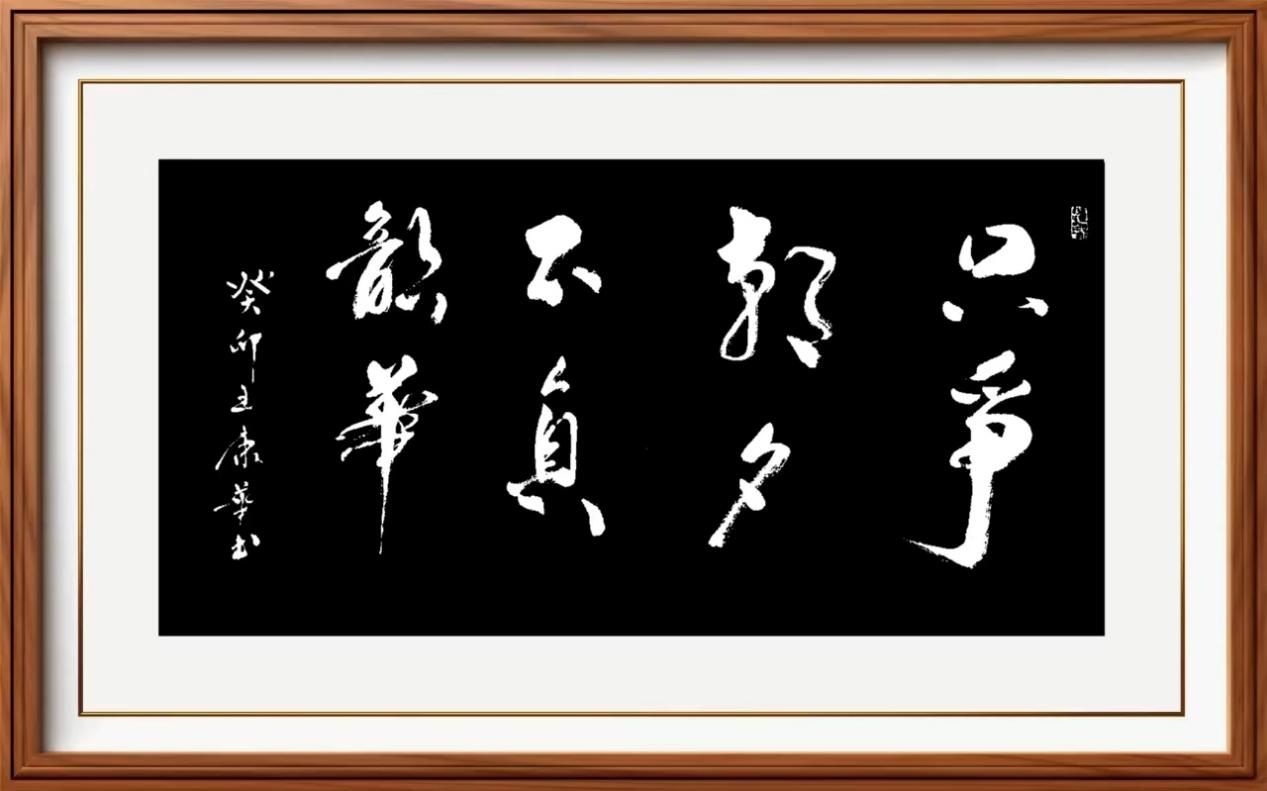 只爭
朝夕
不負
韻華
癸卯王康華书